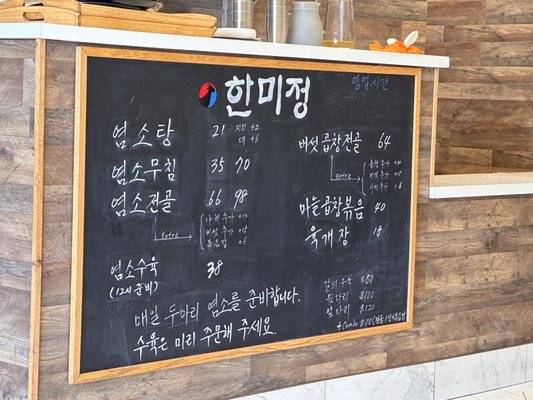 한미정
영업시간
염소탕 21
염소무침 35 70
염소전골 66 98
Extra
염소수육 38
(12시 준비)
버섯곱창전골 64
Extra
마늘곱창볶음 40
육개장 18
갈비수육 $80
뒷다리 $100
앞다리 $120
매일 두마리 염소를 준비합니다.
수육은 미리 주문해 주세요.